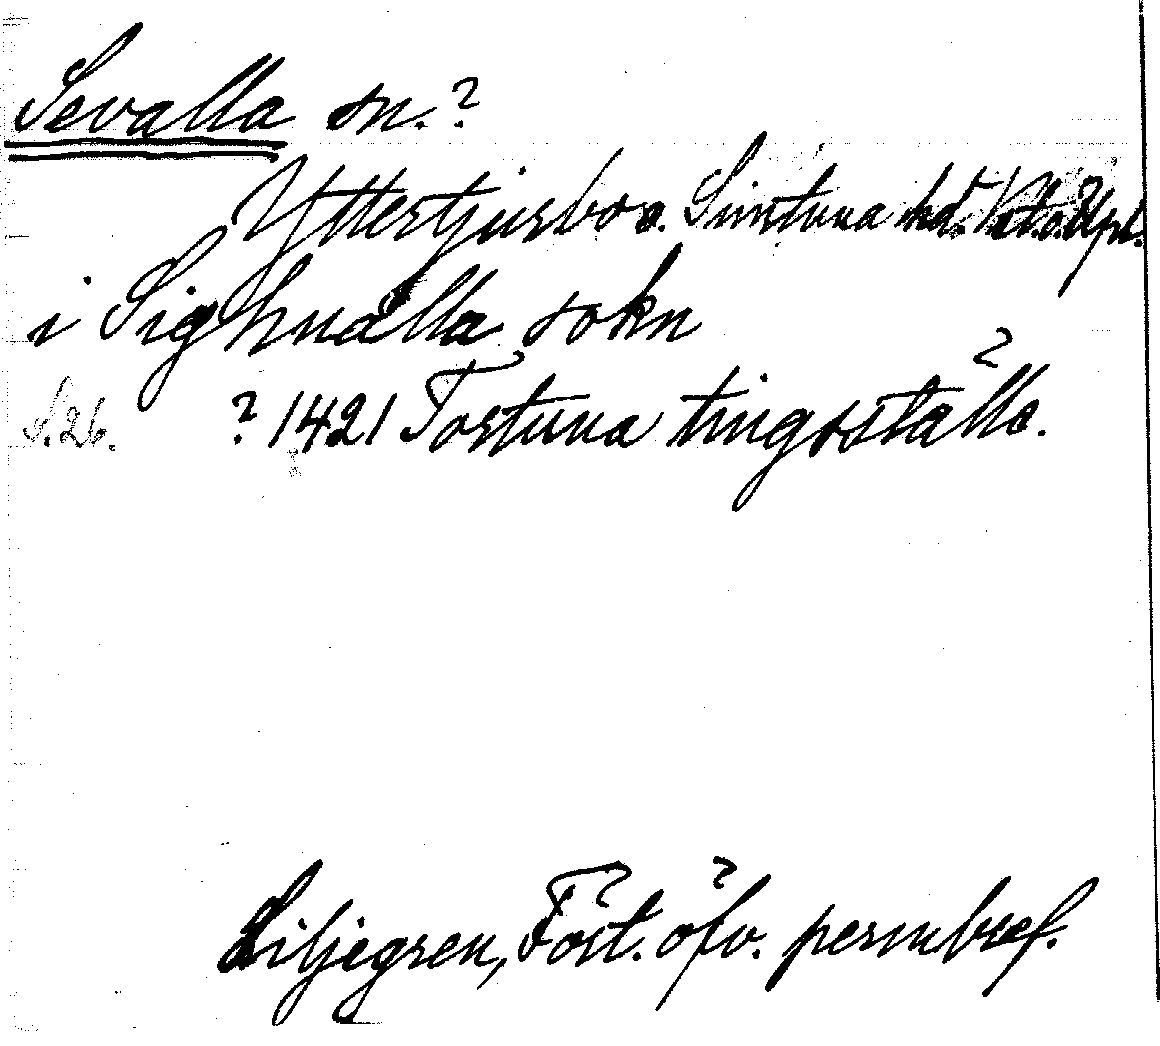 Sevalla sn.?
Yttertjurbo o. Simtuna hd. Vstm. o. Upl.
i Sighualla sokn
S. 26. ? 1421 Torstuna tingsställe.
Liljegren, Fört. öfv. permbref.